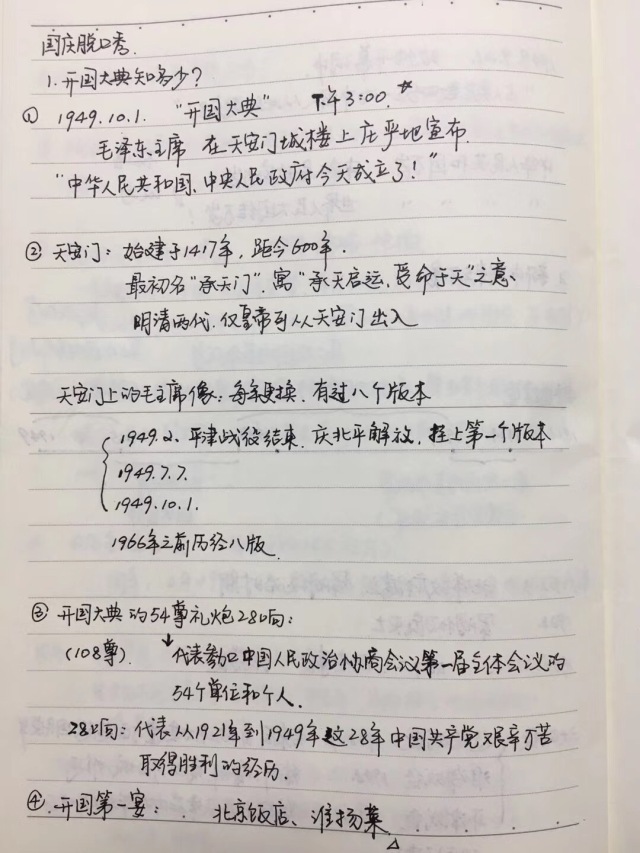 国庆脱口秀.
1.开国大典知多少?
① 1949.10.1. "开国大典" 下午3:00.☆
毛泽东主席 在天安门城楼上庄严地宣布.
"中华人民共和国.中央人民政府今天成立了!"
② 天安门:始建于1417年,距今600年.
最初名"承天门".寓"承天启运,受命于天"之意.
明清两代.仅皇帝可从天安门出入
天安门上的毛主席像:每年更换.有过八个版本
1949.2.平津战役结束.庆北平解放,挂上第一个版本
1949.7.7.
1949.10.1.
1966年之前历经八版.
③ 开国大典的54尊礼炮28响:
(108尊) ↓代表参加中国人民政治协商会议第一届全体会议的
54个单位和个人.
28响:代表从1921年到1949年这28年中国共产党艰辛万苦
取得胜利的经历.
④.开国第一宴: 北京饭店、淮扬菜